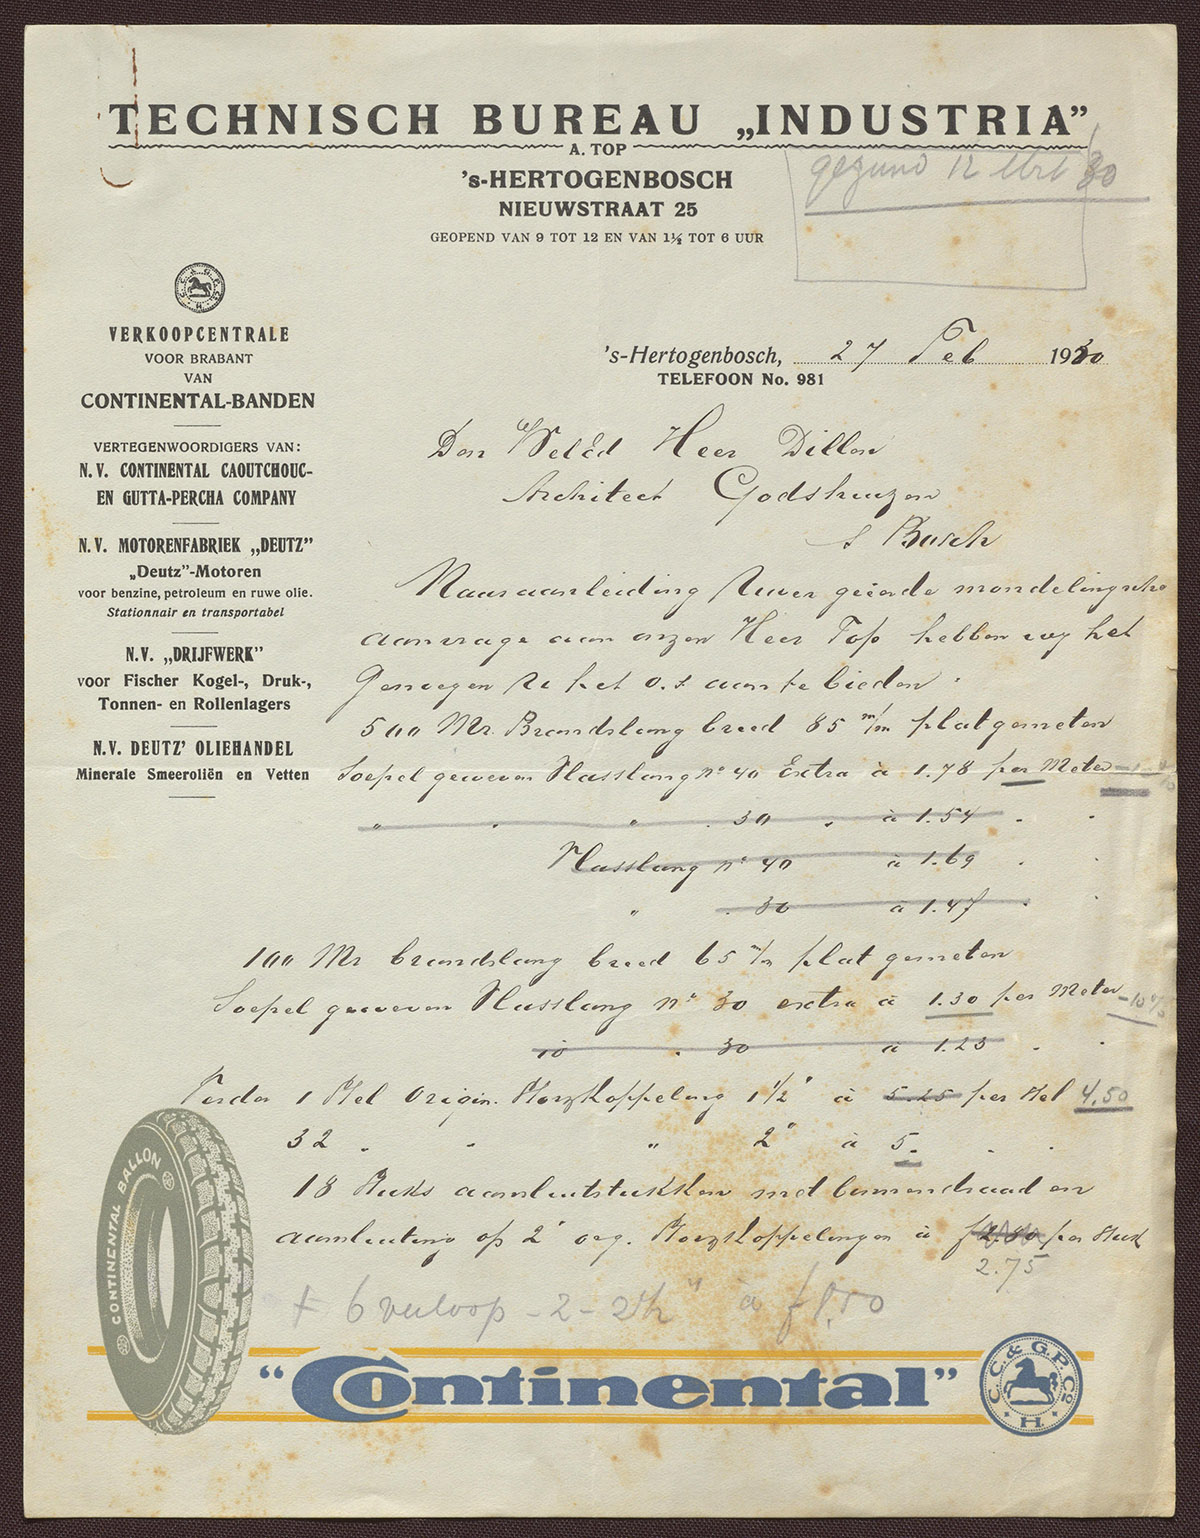 TECHNISCH BUREAU „INDUSTRIA”
A. TOP
's-HERTOGENBOSCH
NIEUWSTRAAT 25
GEOPEND VAN 9 TOT 12 EN VAN 1½ TOT 6 UUR
12 Mrt 30
C.C. & G.P. Co. H.
VERKOOPCENTRALE
VOOR BRABANT
VAN
CONTINENTAL-BANDEN
VERTEGENWOORDIGERS VAN:
N.V. CONTINENTAL CAOUTCHOUC-
EN GUTTA-PERCHA COMPANY
N.V. MOTORENFABRIEK „DEUTZ”
„Deutz”-Motoren
voor benzine, petroleum en ruwe olie.
Stationnair en transportabel
N.V. „DRIJFWERK”
voor Fischer Kogel-, Druk-,
Tonnen- en Rollenlagers
N.V. DEUTZ' OLIEHANDEL
Minerale Smeeroliën en Vetten
's-Hertogenbosch, 27 Feb 1930
TELEFOON No. 981
Den WelEd Heer Dillen
Architect Godshuizen
s Bosch
Naar aanleiding Uwer geëerde mondelingsche
aanvrage aan onzen Heer Top hebben wij het
Genoegen U het o.s. aan te bieden.
500 Mr. Brandslang breed 85 m/m plat gemeten
Soepel geweven Vlasslang no 40 Extra à 1.78 per Meter
" " " 30 " à 1.54 " "
Vlasslang no 40 à 1.69 " "
" " 30 à 1.47 " "
100 Mr brandslang breed 65 m/m plat gemeten
Soepel geweven Vlasslang no 30 extra à 1.30 per Meter -10%
" 30 à 1.23 " "
Verder 1 Stel Origin. Storzkoppeling 1½" à 5.25 per Stel 4.50
32 " " " 2" à 5. " "
18 Stuks aansluitstukken met binnendraad en
aansluiting op 2" org. Storzkoppelingen à f 2.80 per Stuk
2.75
+ 6 verloop - 2 - 2½" à f 8.50
CONTINENTAL BALLON
"Continental"
C.C. & G.P. Co. H.